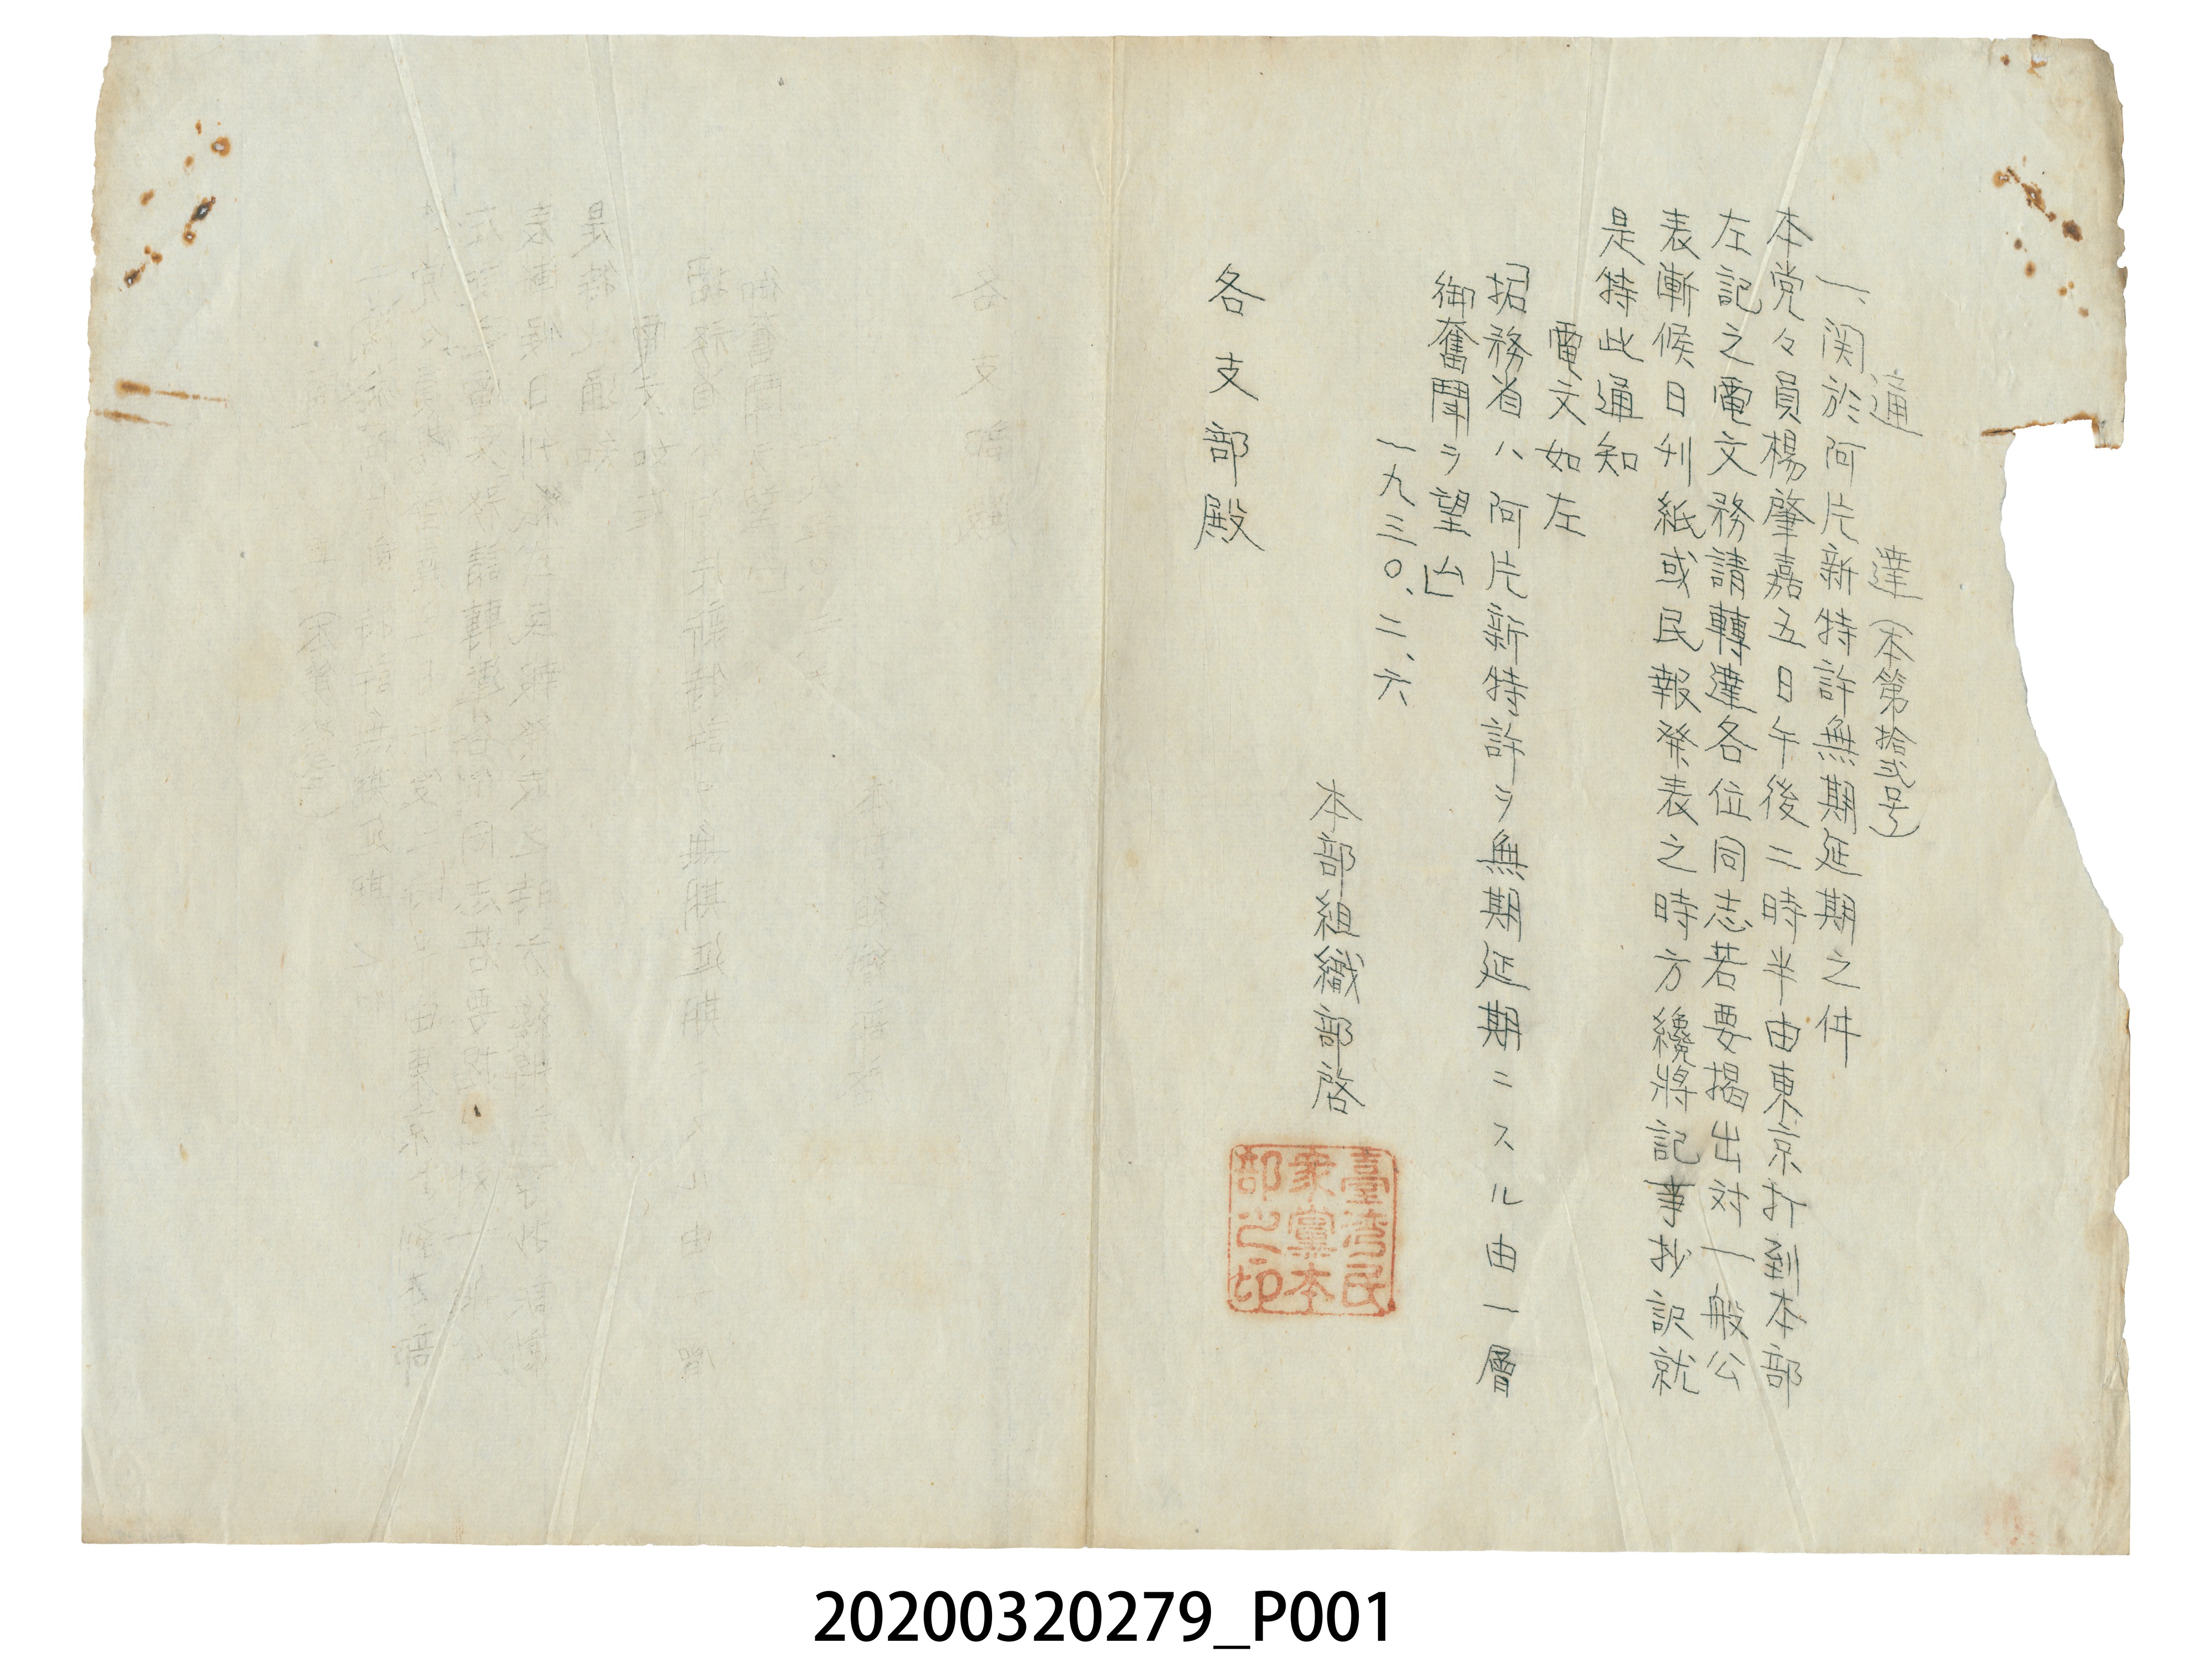 通達（本第拾弐号）
一、関於阿片新特許無期延期之件
本党々員楊肇嘉五日午後二時半由東京打到本部
左記之電文務請轉達各位同志若要揭出対一般公
表漸候日刊紙或民報発表之時方纔將記事抄訳就
是特此通知
電文如左
「拓務省ハ阿片新特許ヲ無期延期ニスル由一層
御奮闘ヲ望ム」
一九三〇、二、六
本部組織部啓
臺湾民
衆黨本
部之印
各支部殿
20200320279_P001